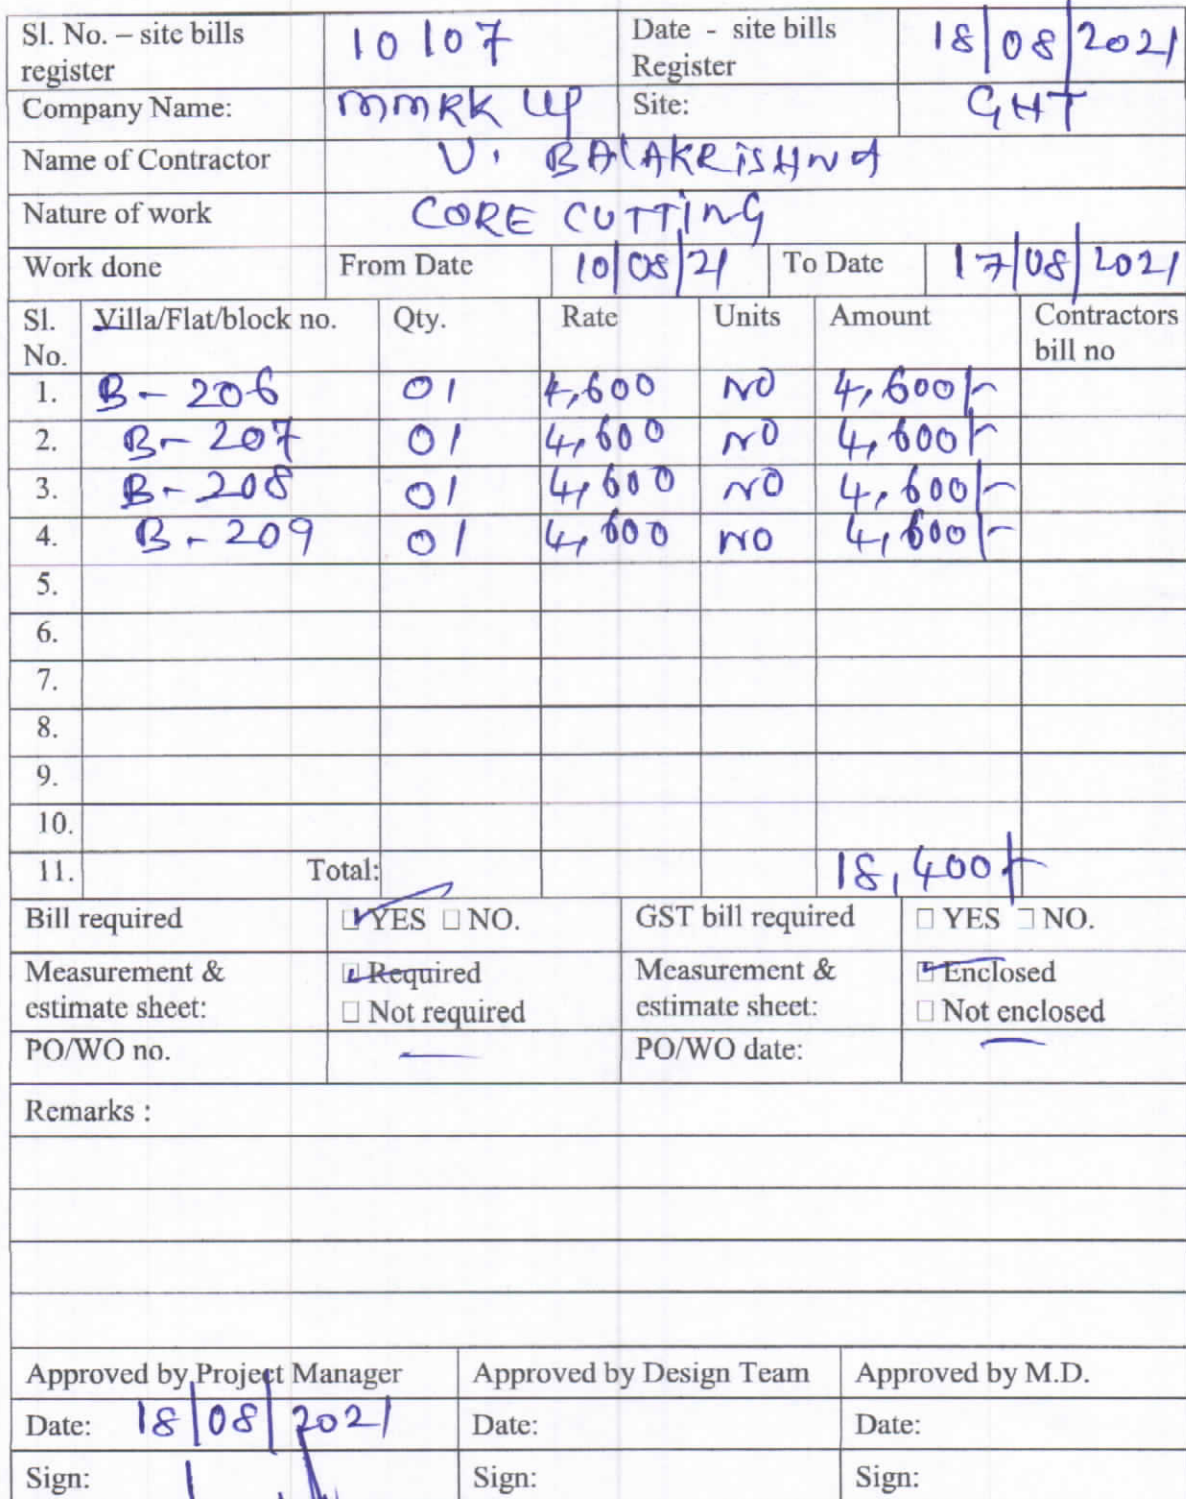 Sl. No. – site bills register 10107 Date - site bills Register 18/08/2021
Company Name: MMRK LLP Site: GHT
Name of Contractor V. BALAKRISHNA
Nature of work CORE CUTTING
Work done From Date 10/08/21 To Date 17/08/2021
Sl. No. Villa/Flat/block no. Qty. Rate Units Amount Contractors bill no
1. B-206 01 4,600 NO 4,600/-
2. B-207 01 4,600 NO 4,600/-
3. B-208 01 4,600 NO 4,600/-
4. B-209 01 4,600 NO 4,600/-
5.
6.
7.
8.
9.
10.
11. Total: 18,400/-
Bill required ☑ YES ☐ NO. GST bill required ☐ YES ☐ NO.
Measurement & estimate sheet: ☑ Required ☐ Not required Measurement & estimate sheet: ☑ Enclosed ☐ Not enclosed
PO/WO no. — PO/WO date: —
Remarks :
Approved by Project Manager Approved by Design Team Approved by M.D.
Date: 18/08/2021 Date: Date:
Sign: Sign: Sign: